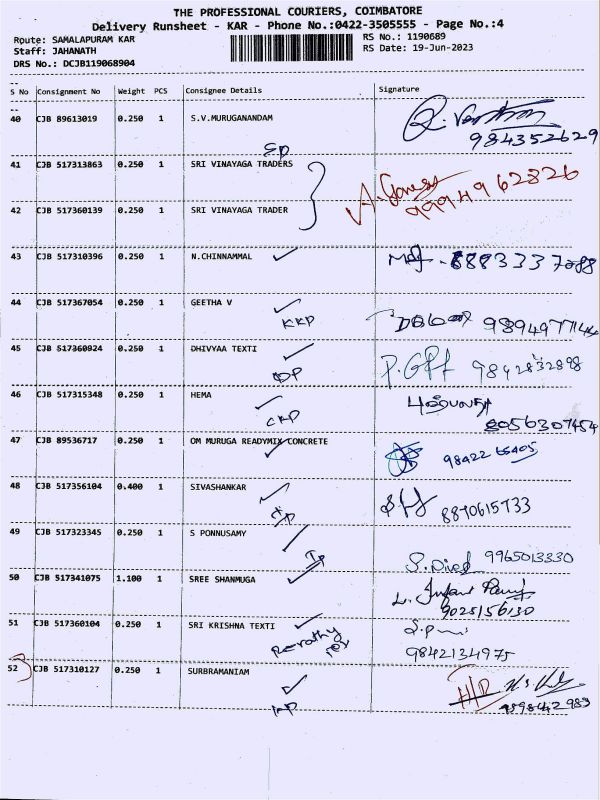 THE PROFESSIONAL COURIERS, COIMBATORE
Delivery Runsheet - KAR - Phone No.:0422-3505555 - Page No.:4
Route: SAMALAPURAM KAR RS No.: 1190689
Staff: JAHANATH RS Date: 19-Jun-2023
DRS No.: DCJB119068904
S No Consignment No Weight PCS Consignee Details Signature
40 CJB 89613019 0.250 1 S.V.MURUGANANDAM
984352629
41 CJB 517313863 0.250 1 SRI VINAYAGA TRADERS
A. Ganesh
9994962826
42 CJB 517360139 0.250 1 SRI VINAYAGA TRADER
43 CJB 517310396 0.250 1 N.CHINNAMMAL
44 CJB 517367054 0.250 1 GEETHA V
KKP
45 CJB 517360924 0.250 1 DHIVYAA TEXTI
DP 9842832898
46 CJB 517315348 0.250 1 HEMA
CKP 8056307454
47 CJB 89536717 0.250 1 OM MURUGA READYMIX CONCRETE
98422 65405
48 CJB 517356104 0.400 1 SIVASHANKAR
8870615733
49 CJB 517323345 0.250 1 S PONNUSAMY
9965013330
50 CJB 517341075 1.100 1 SREE SHANMUGA
9025156130
51 CJB 517360104 0.250 1 SRI KRISHNA TEXTI
Revathy
9842134975
52 CJB 517310127 0.250 1 SURBRAMANIAM